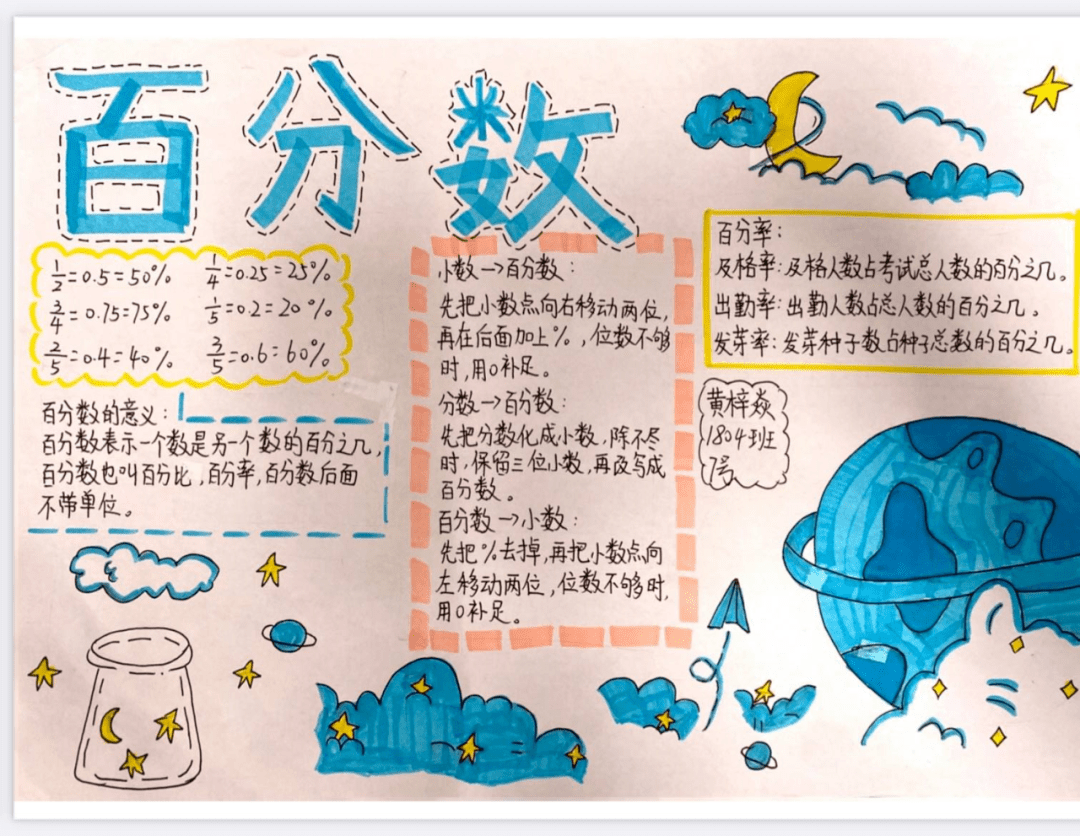 百分数
1/2=0.5=50% 1/4=0.25=25%
3/4=0.75=75% 1/5=0.2=20%
2/5=0.4=40% 3/5=0.6=60%
百分数的意义：
百分数表示一个数是另一个数的百分之几，
百分数也叫百分比，百分率，百分数后面
不带单位。
小数→百分数：
先把小数点向右移动两位，
再在后面加上%，位数不够
时，用0补足。
分数→百分数：
先把分数化成小数，除不尽
时，保留三位小数，再改写成
百分数。
百分数→小数：
先把%去掉，再把小数点向
左移动两位，位数不够时，
用0补足。
百分率：
及格率：及格人数占考试总人数的百分之几。
出勤率：出勤人数占总人数的百分之几。
发芽率：发芽种子数占种子总数的百分之几。
黄梓焱
1804班
7号